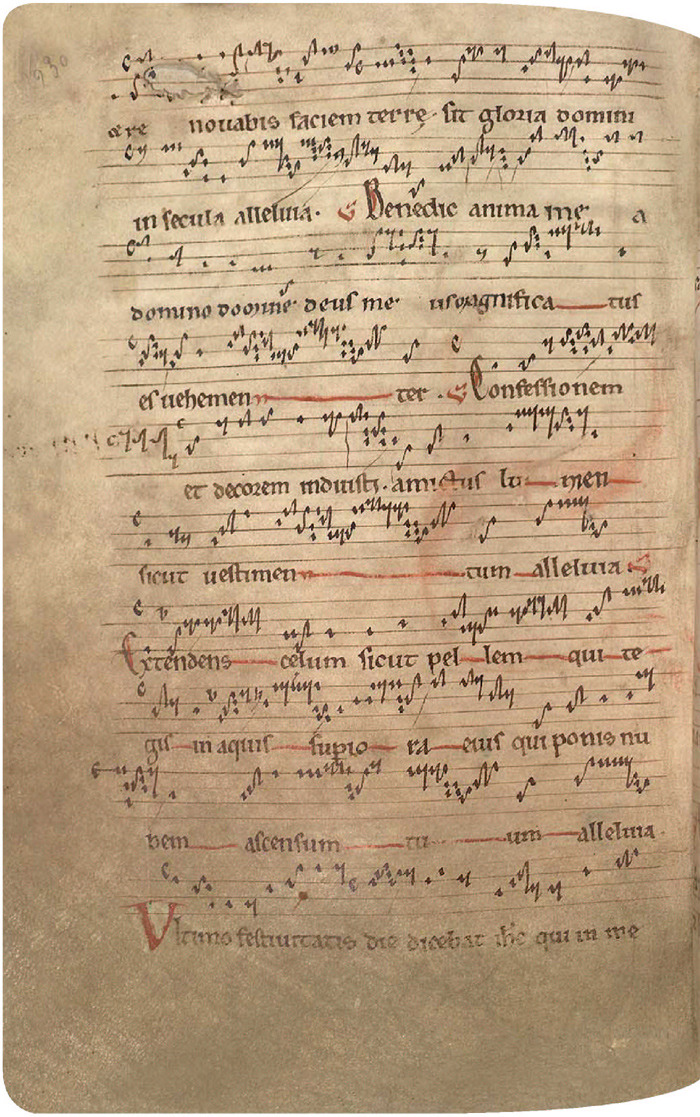 et re nouabis faciem terre. sit gloria domini
in secula alleluia. Benedic anima me a
domino domine deus me us magnifica tus
es uehemen ter. Confessionem
et decorem induisti. amictus lu men
sicut uestimen tum alleluia
Extendens celum sicut pel lem qui te
gis in aquis supio ra eius qui ponis nu
bem ascensum tu um alleluia.
Vltimo festiuitatis die dicebat ihc qui in me